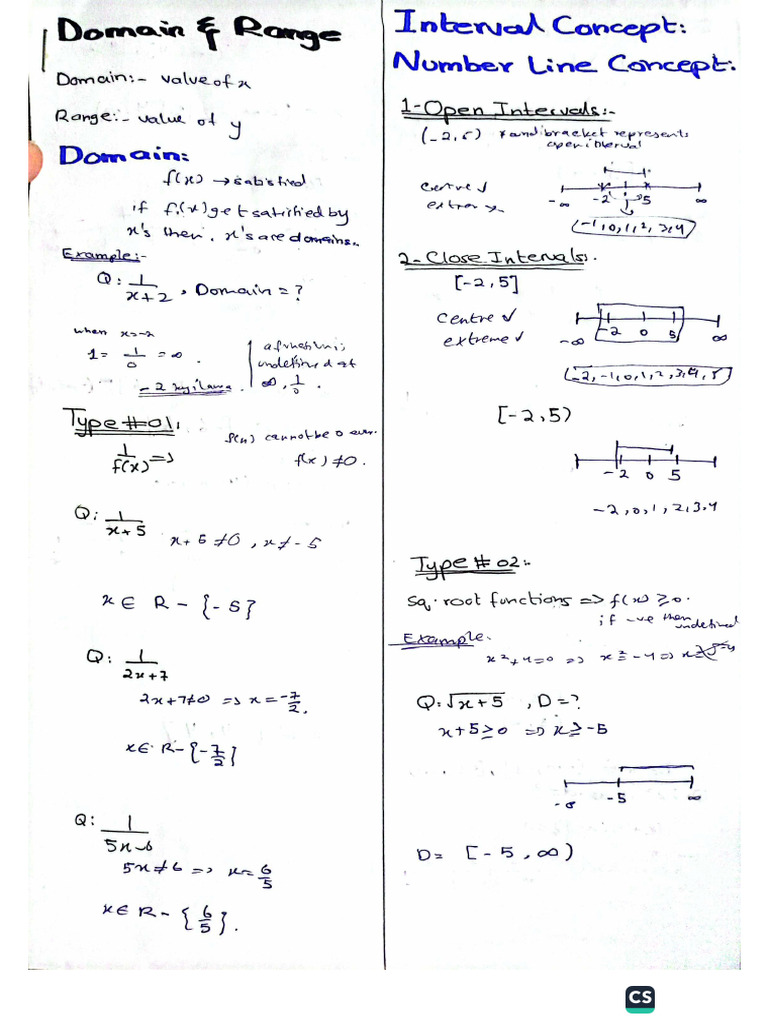 Domain & Range
Domain:- value of x
Range:- value of y
Domain:
f(x) → satisfied
if f(x) get satisfied by
x's then, x's are domains.
Example:-
Q: 1/(x+2), Domain = ?
when x=-2
1 = 1/0 = ∞.
undefined at
∞, 1/0.
Type #01:
1/f(x) => f(x) cannot be 0
f(x) ≠ 0.
Q: 1/(x+5)
x+5 ≠ 0, x ≠ -5
x ∈ R - {-5}
Q: 1/(2x+7)
2x+7≠0 => x = -7/2.
x ∈ R - {-7/2}
Q: 1/(5x-6)
5x≠6 => x = 6/5
x ∈ R - {6/5}.
Interval Concept:
Number Line Concept:
1-Open Intervals:-
(-2,5) bracket represents
open interval
centre ✓
extreme x
-∞ -2 5 ∞
-1,0,1,2,3,4
2-Close Intervals:
[-2,5]
centre ✓
extreme ✓
-∞ -2 0 5 ∞
-2,-1,0,1,2,3,4,5
[-2,5)
-2 0 5
-2,0,1,2,3,4
Type # 02:-
Sq. root functions => f(x) ≥ 0.
if -ve then
undefined
Example.
x²+4=0 => x²=-4 =>
Q: √x+5, D=?
x+5≥0 => x≥-5
-∞ -5 ∞
D= [-5,∞)
CS